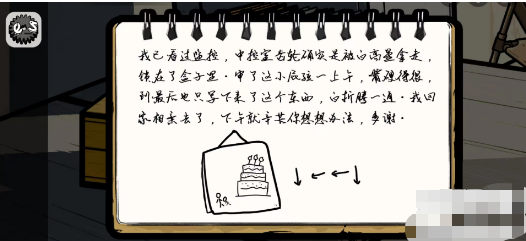 我已看过监控，中控室齿轮确实是被白高星拿走，
锁在了盒子里。审了这小屁孩一上午，嘴硬得很，
到最后也只写下来了这个东西，白折腾一通。我回
家相亲去了，下午就辛苦你想想办法，多谢。
↓ ← ← ↓